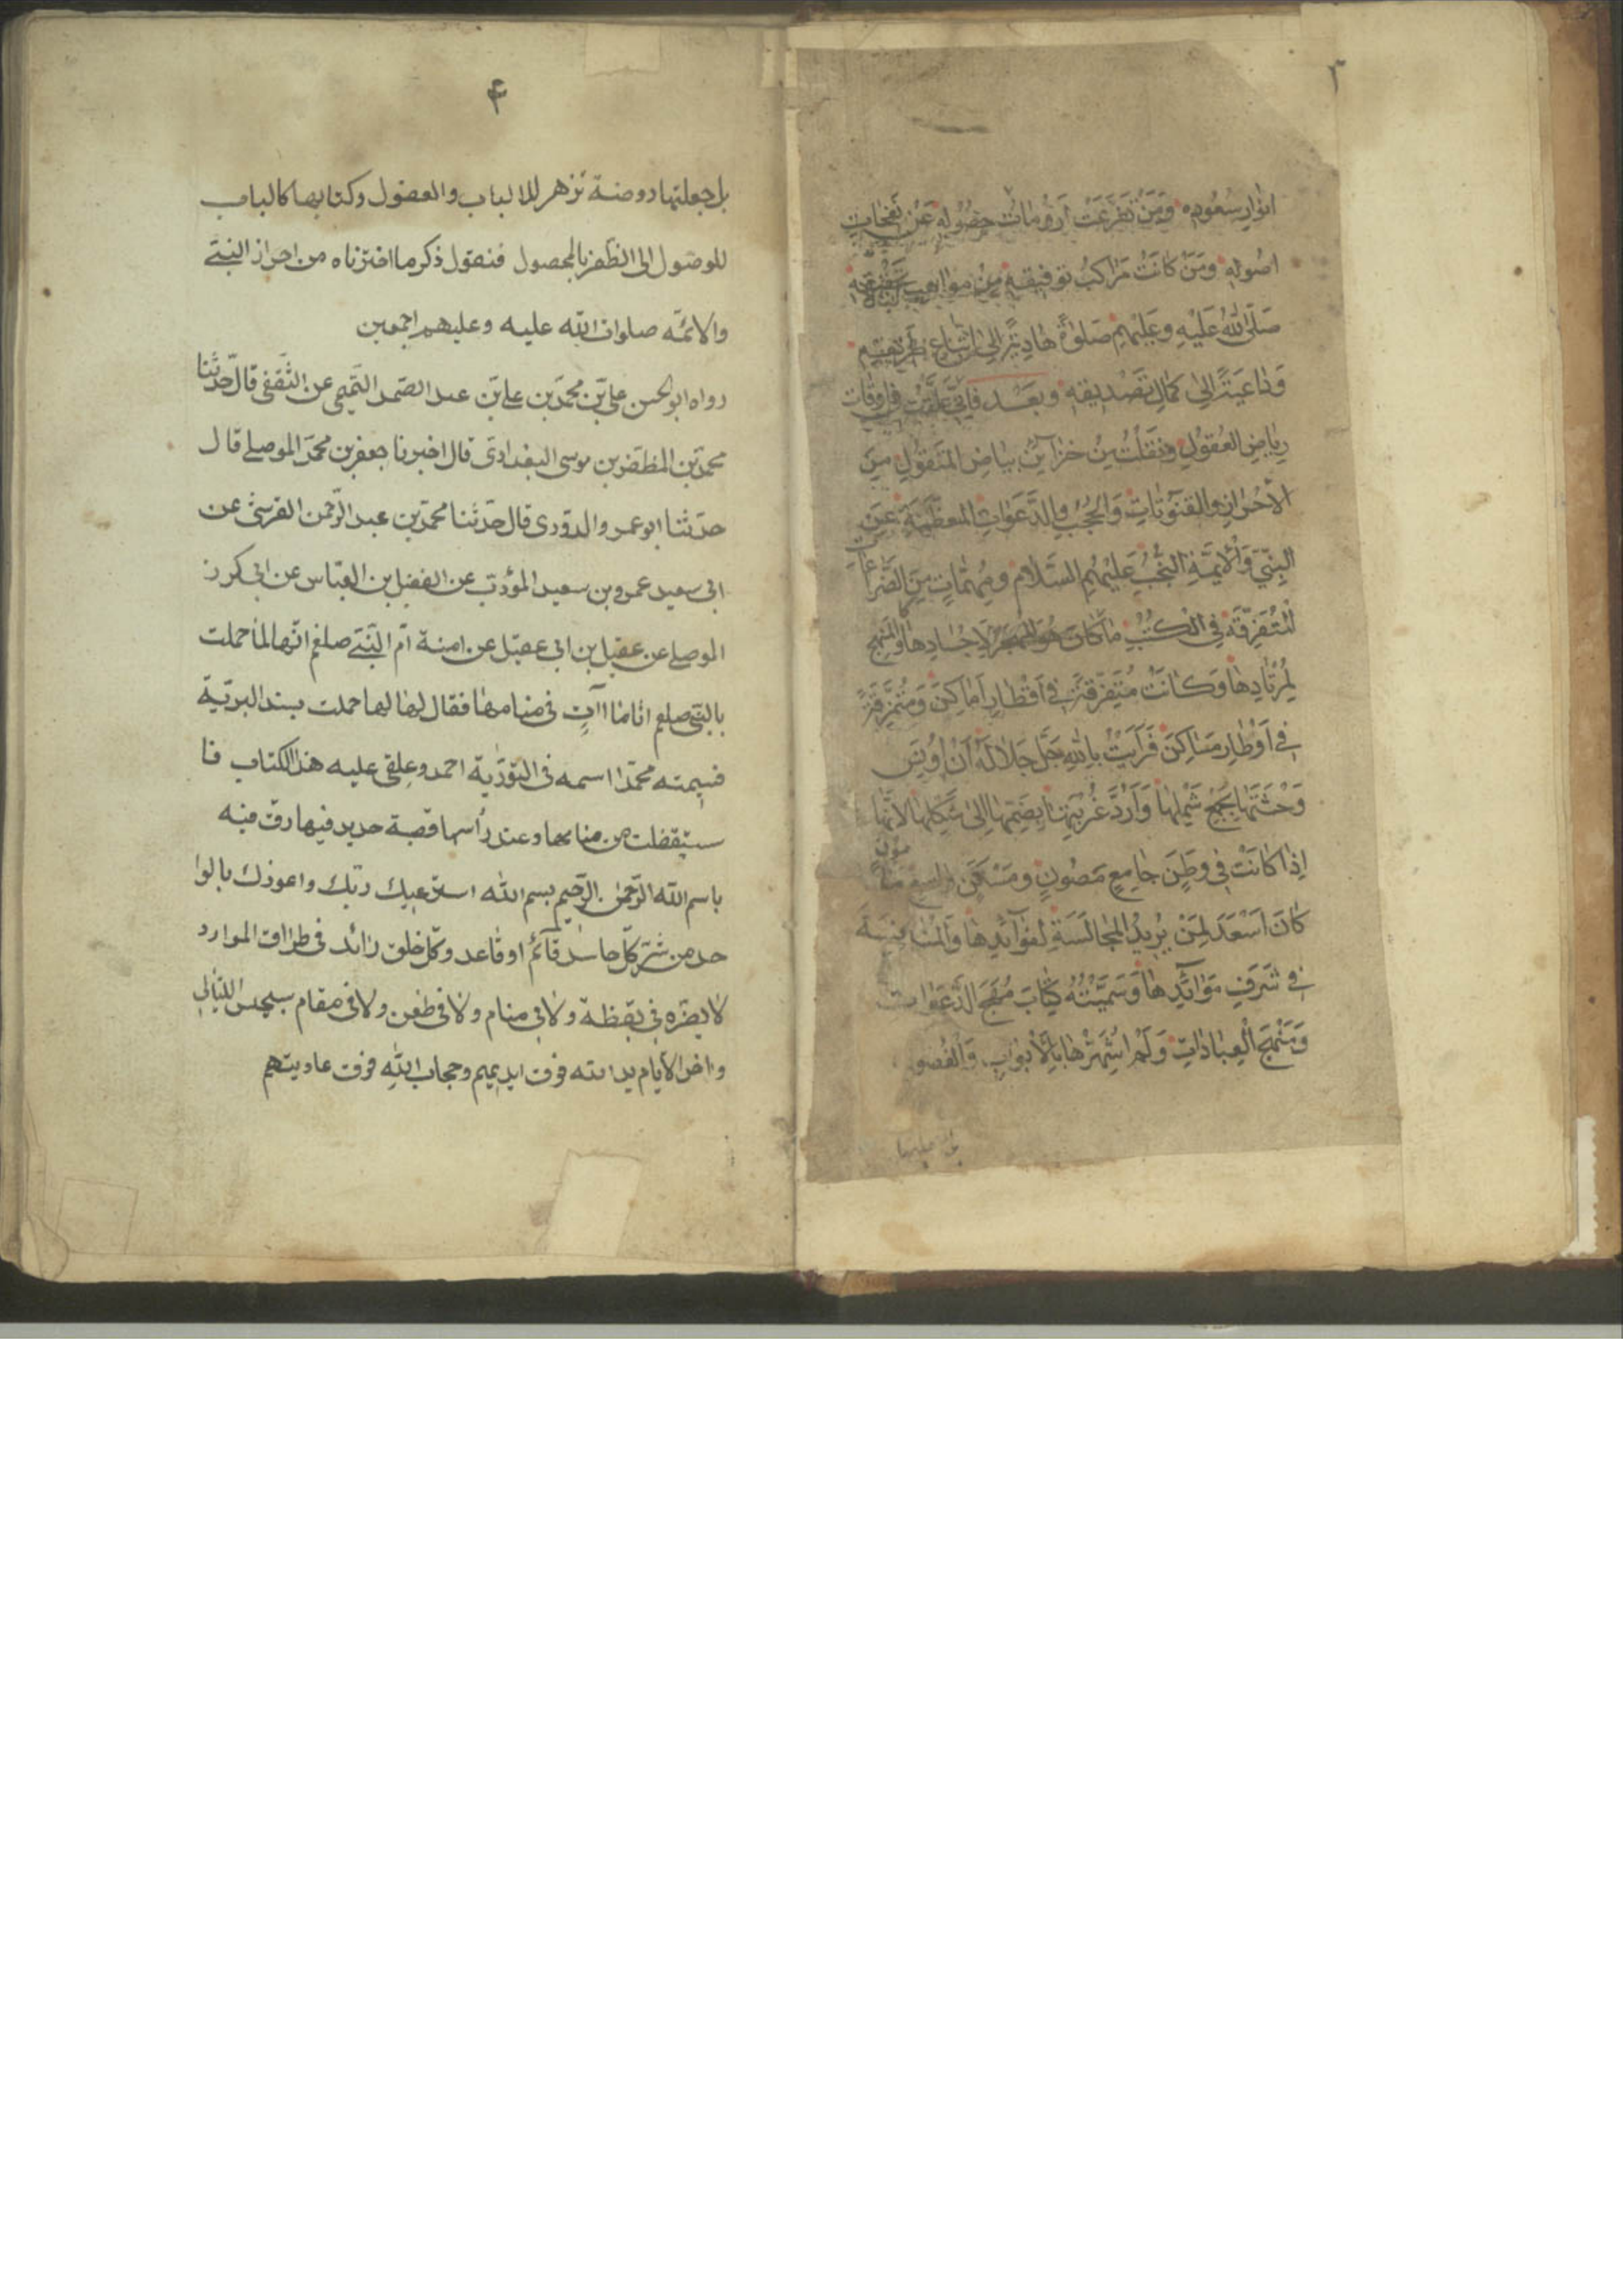 ٣
انوار سعوده ومن تفرعت ارومات حصوله عن نفحات
اصوله ومن كانت مراكب توفيقه من مواهب تحقيقه
صلى الله عليه وعليهم صلوة هادية الى اتباع طريقهم
وداعية الى كمال تصديقه وبعد فانى علقت فى اوقات
رياض العقول ونقلت من خزآئن بياض المنقول من
الاحراز والقنوتات والحجب والدعوات المعظمة عن
النبى والائمة النجب عليهم السلام ومهمات من الضراعات
المتفرقة فى الكتب ما كان هو لاجسادها والمنهج
لمرتادها وكانت متفرقة فى اقطار اماكن ومتمزقة
فى اوطار مساكن فرايت بالله جل جلاله ان اونس
وحشتها بجمع شملها وارد غربتها بضمها الى شكلها لانها
اذا كانت فى وطن جامع مصون ومسكن واسع مامون
كان اسعد لمن يريد المجالسة لفوآئدها والمنافسة
فى شرف موائدها وسميته كتاب مهج الدعوات
ومنهج العبادات ولم اشهرها بالابواب والفصو
بل جعلتها
۴
بل جعلتها روضة تزهر للالباب والعقول وكتابها كالباب
للوصول الى الظفر بالمحصول فنقول ذكر ما اخترناه من احراز النبى
والائمه صلوات الله عليه وعليهم اجمعين
رواه ابو الحسن على بن محمد بن على بن عبد الصمد التميمى عن الثقفى قال حدثنا
محمد بن المظفر بن موسى البغدادى قال اخبرنا جعفر بن محمد الموصلى قال
حدثنا ابو عمرو الدورى قال حدثنا محمد بن عبد الرحمن القرشى عن
ابى سعيد عمرو بن سعيد المؤدب عن الفضل بن العباس عن ابى كرز
الموصلى عن عقيل بن ابى عقيل عن امنة ام النبى صلعم انها لما حملت
بالنبى صلعم اتاها آت فى منامها فقال لها حملت بسيد البرية
فسميته محمدا اسمه فى التورية احمد وعلقى عليه هذا الكتاب فا
ستيقضت من منامها وعند رأسها قصبة حديد فيها رق فيه
باسم الله الرحمن الرحيم بسم الله استرعيك ربك واعوذك بالوا
حد من شر كل حاسد قآئم او قاعد وكل خلق رائد فى طراق الموارد
لا يضره فى يقظة ولا فى منام ولا فى ظعن ولا فى مقام سبجس الليالى
واخر الايام يد الله فوق ايديهم وحجاب الله فوق عاديتهم